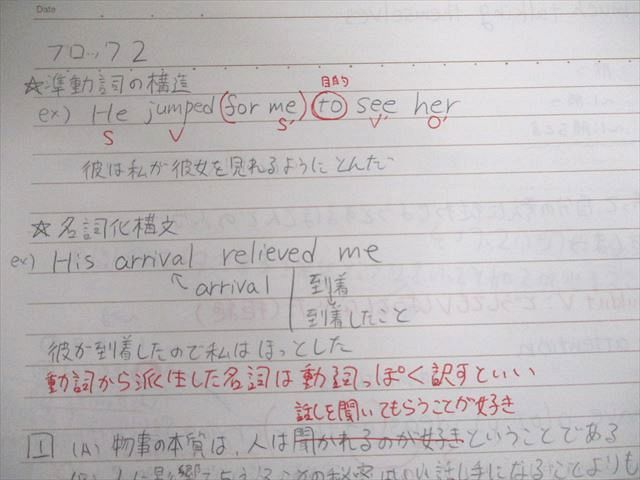 Date
ブロック2
☆準動詞の構造
目的
ex) He jumped (for me) to see her
S V S' V' O'
彼は私が彼女を見れるようにとんだ
☆名詞化構文
ex) His arrival relieved me
↖ arrival 到着
↓
到着したこと
彼が到着したので私はほっとした
動詞から派生した名詞は動詞っぽく訳すといい
話しを聞いてもらうことが好き
1 (A) 物事の本質は、人は聞かれるのが好きということである